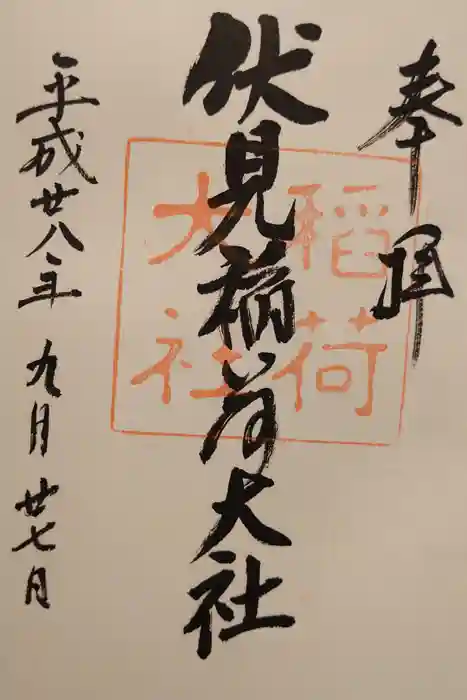 奉拝
伏見稲荷大社
稲荷
大社
平成廿八年 九月 廿七日